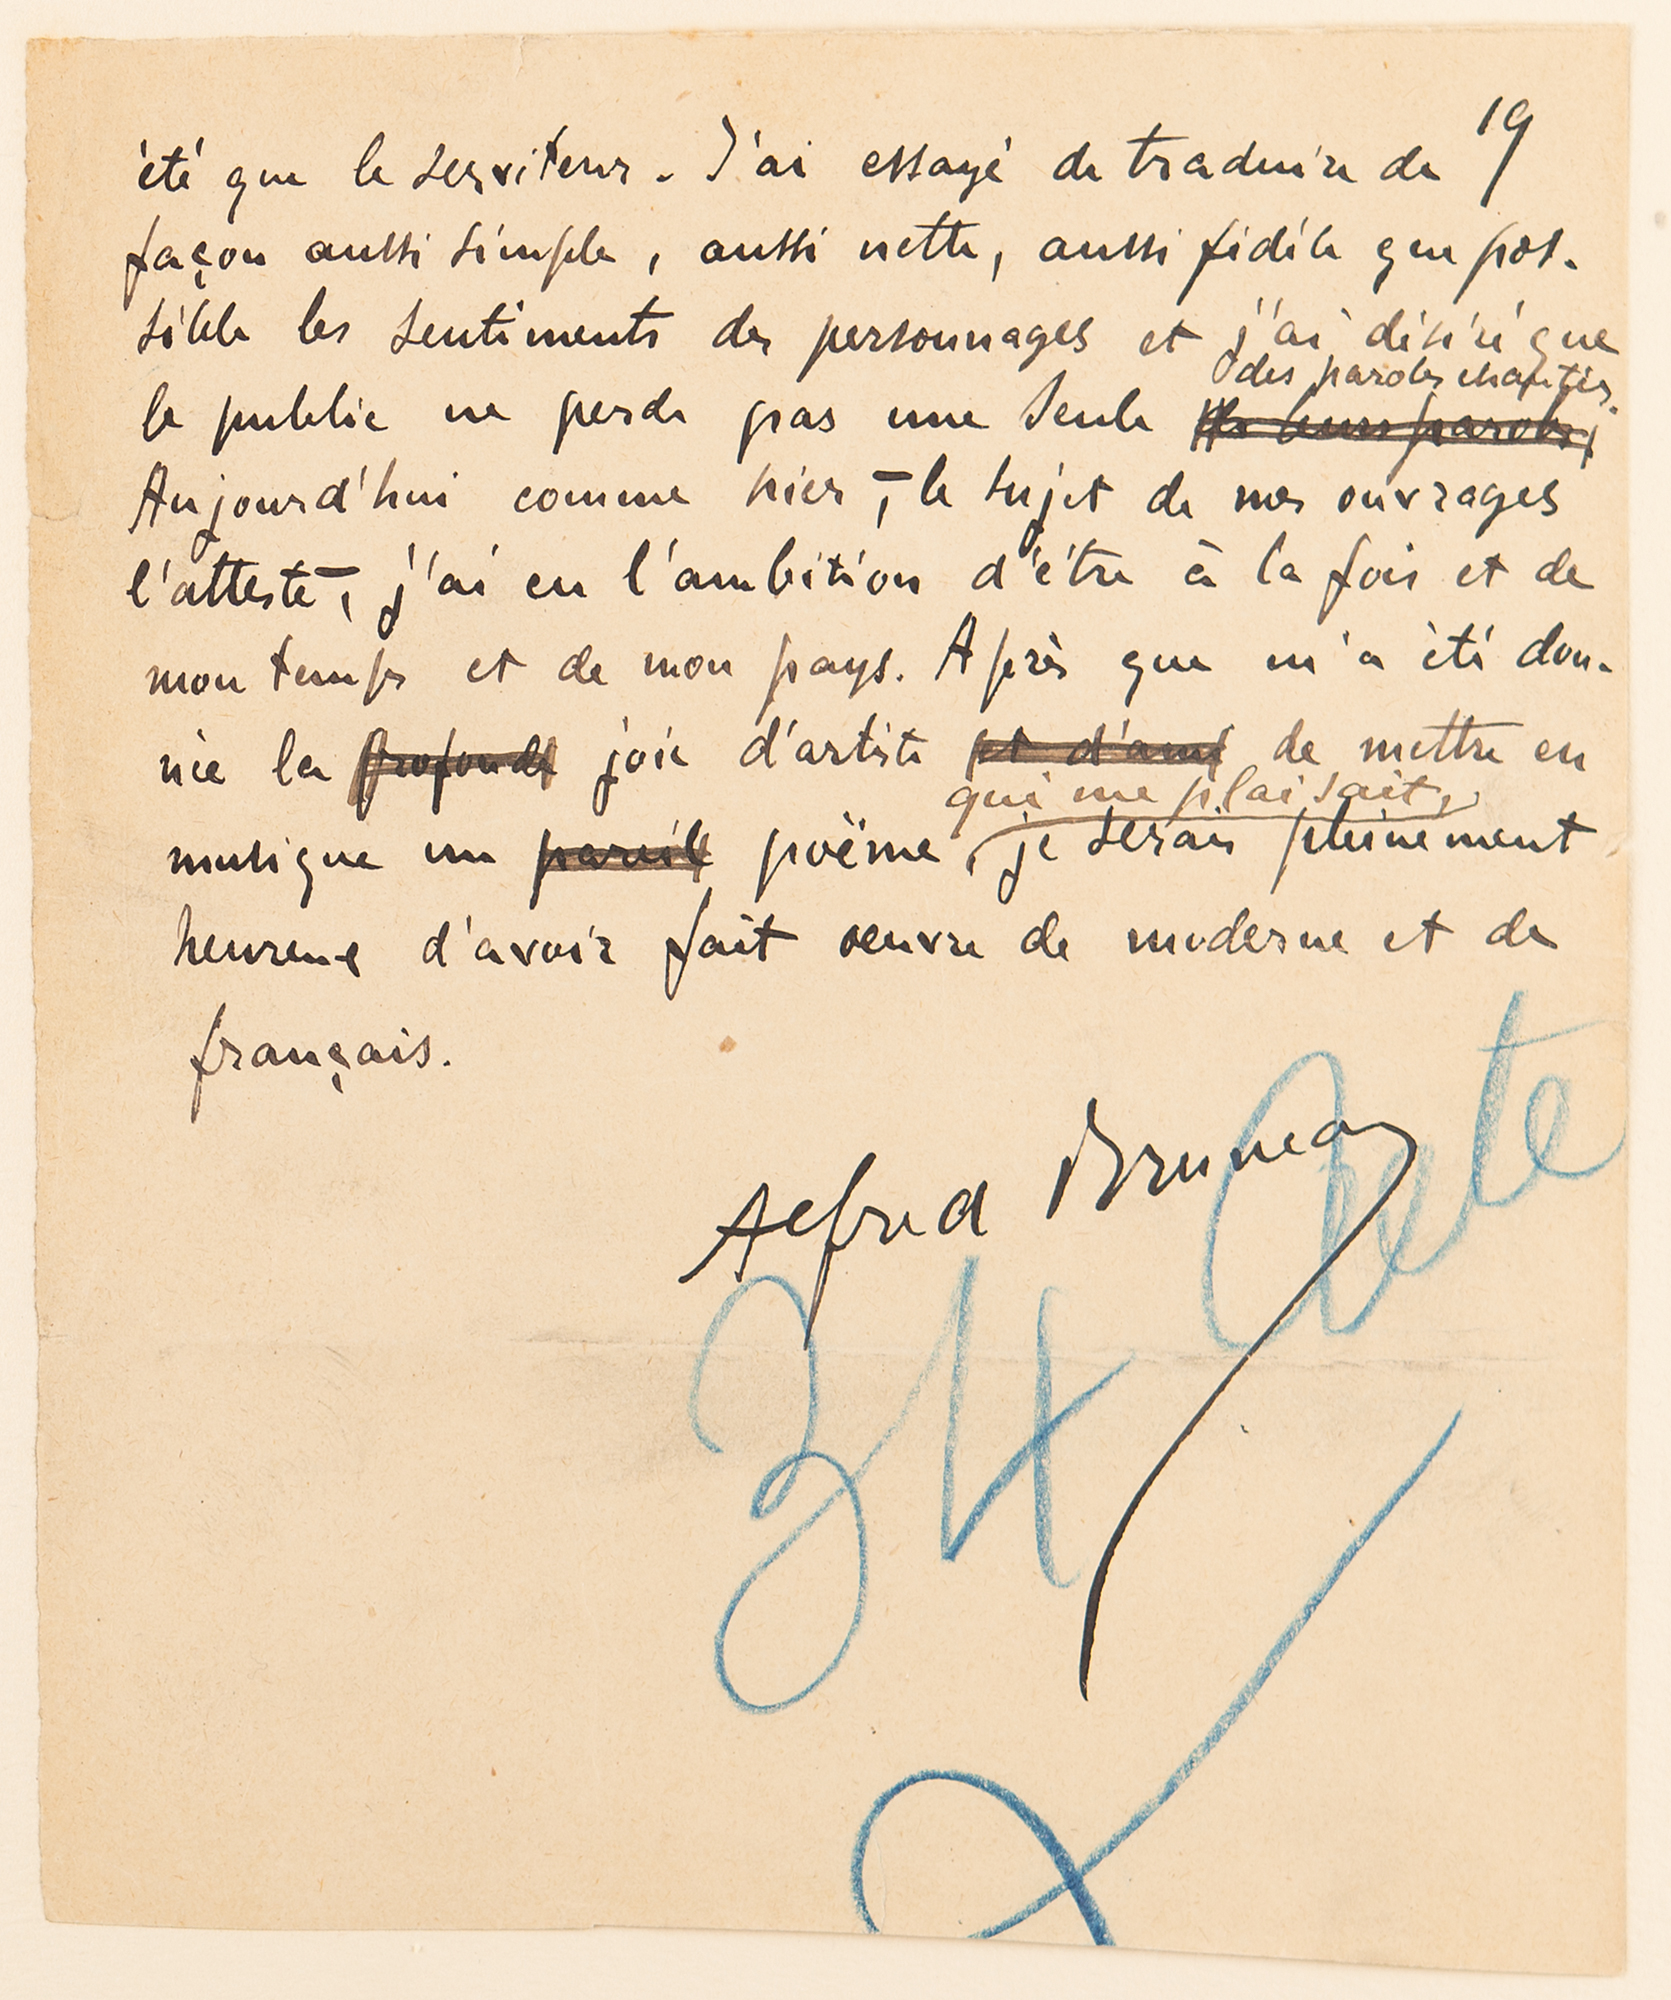 19
été que le serviteur. J'ai essayé de traduire de
façon aussi simple, aussi nette, aussi fidèle que pos-
sible les sentiments des personnages et j'ai désiré que
des paroles chantées.
le public ne perde pas une seule de leurs paroles.
Aujourd'hui comme hier, — le sujet de mes ouvrages
l'atteste —, j'ai eu l'ambition d'être à la fois et de
mon temps et de mon pays. Après que m'a été don-
née la profonde joie d'artiste et d'ami de mettre en
qui me plaisait,
musique un pareil poëme, je serais pleinement
heureux d'avoir fait œuvre de moderne et de
français.
Alfred Bruneau